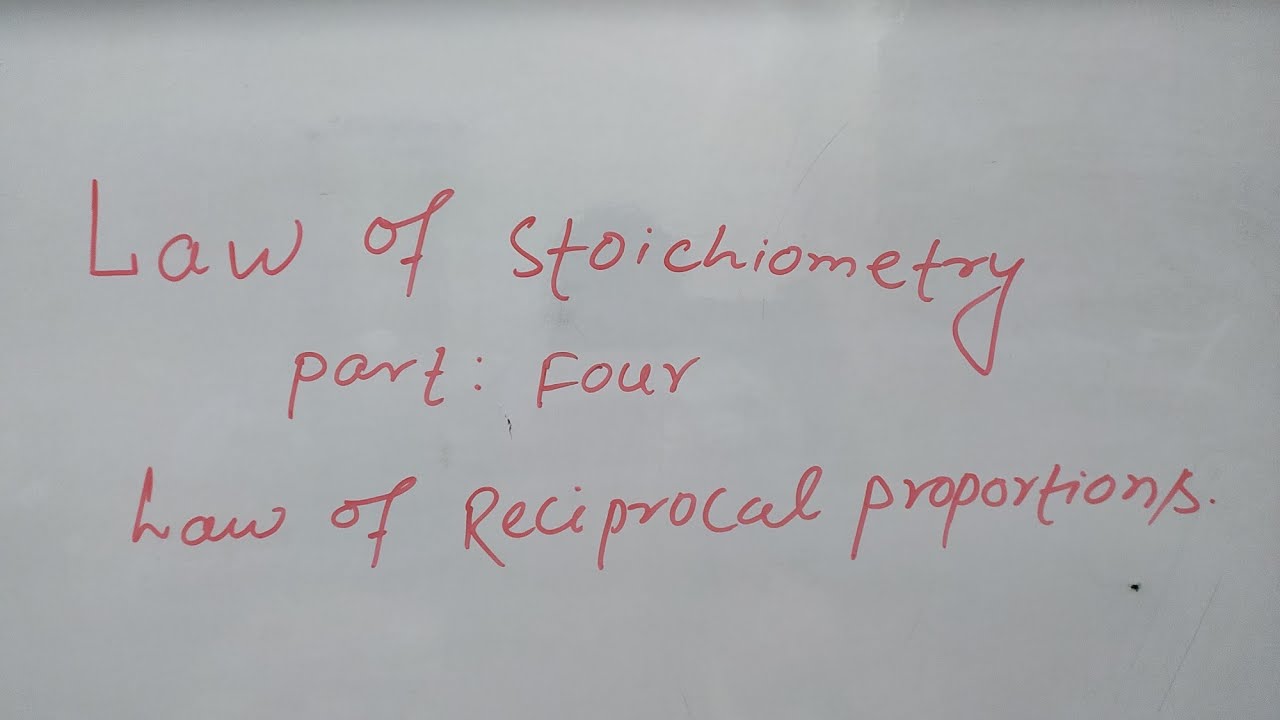 Law of Stoichiometry
part: Four
Law of Reciprocal proportions.